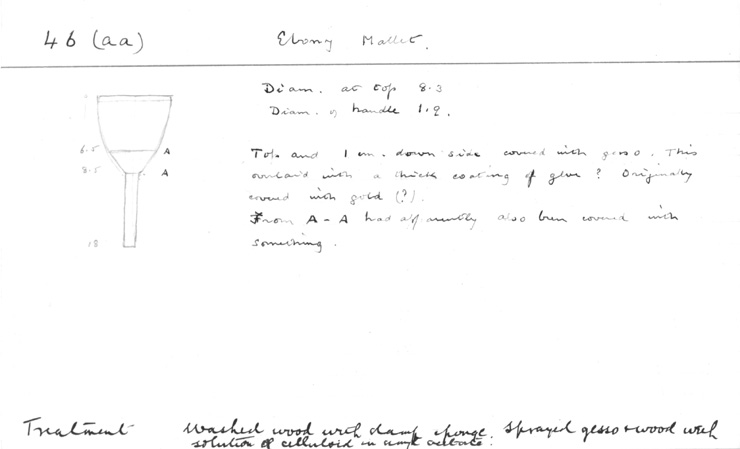 46 (aa) Ebony Mallet.
Diam. at top 8.3
Diam. of handle 1.9.
6.5 A
Top and 1 cm. down side covered with gesso. This
8.5 A
overlaid with a thick coating of glue? Originally
covered with gold (?).
From A - A had apparently also been covered with
18
something.
Treatment Washed wood with damp sponge. Sprayed gesso + wood with
solution of celluloid in amyl acetate.